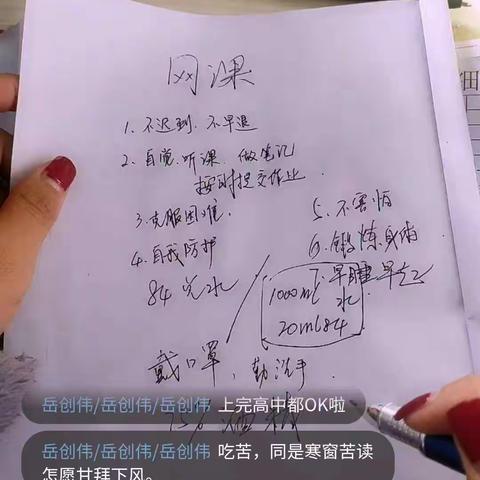 网课
1、不迟到、不早退
2、自觉、听课、做笔记
按时提交作业
3、克服困难、
4、自我防护
84 兑水
5、不害怕
6、锻炼身体
7、早睡早起
1000ml 水
20ml84
戴口罩、勤洗手
75% 酒精
岳创伟/岳创伟/岳创伟 上完高中都OK啦
岳创伟/岳创伟/岳创伟 吃苦，同是寒窗苦读
怎愿甘拜下风。
细